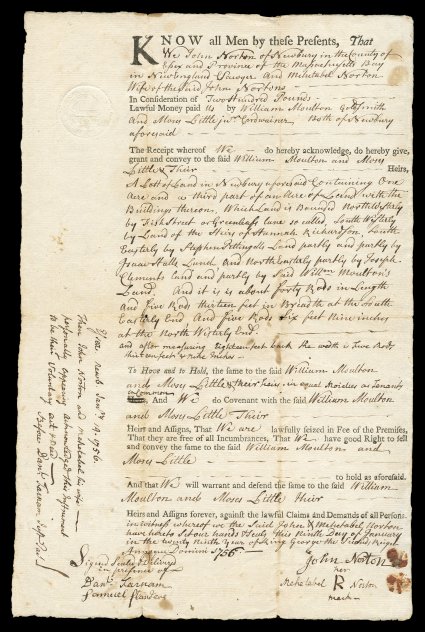 KNOW all Men by these Presents, That
We John Norton of Newbury in the County of
Essex and Province of the Massachusetts Bay
in New England Sawyer And Mehetabel Norton
Wife of the said John Nortons
In Consideration of Two Hundred Pounds
Lawful Money paid us by William Moulton Goldsmith
And Moses Little junr Cordwainer Both of Newbury
aforesaid
The Receipt whereof We do hereby acknowledge, do hereby give,
grant and convey to the said William Moulton and Moses
Little & Their Heirs,
A Lott of Land in Newbury aforesaid Containing One
Acre and a third part of an Acre of Land with the
Buildings thereon, Which Land is Bounded North Westerly
by Fish Street or Greenleafs lane so called, South Westerly
by Land of the Heirs of Hannah Richardson, South
Easterly by Stephen Pettingells Land partly and partly by
Isaac Halls Land And North Easterly partly by Joseph
Clements land and partly by Said Willm Moulton's
Land. And it is about forty Rods in Length
And five Rods thirteen feet in Breadth at the South
Easterly End And five Rods six feet nine inches
at the North Westerly End
and after measuring eighteen feet back the width is five Rods
thirteen feet & nine Inches
To Have and to Hold, the same to the said William Moulton
and Moses Little & their heirs, in equal Moieties as Tenants
in Common
And We do Covenant with the said William Moulton
and Moses Little Their
Heirs and Assigns, That We are lawfully seized in Fee of the Premises,
That they are free of all Incumbrances, That We have good Right to sell
and convey the same to the said William Moulton and
Moses Little
to hold as aforesaid.
And that We will warrant and defend the same to the said William
Moulton and Moses Little their
Heirs and Assigns forever, against the lawful Claims and Demands of all Persons.
in witness whereof we the Said John & Mehetabel Norton
have hereto Set our hands & Seals this Ninth Day of January
in the twenty Ninth Year of King George the Second, Reign
Annoque Domini 1756
Signed Sealed & Delivered
in presence of
Danl Farnam
Samuel Flanders
John Norton
her
Mehetabel R Norton
mark
Essex Newb Janry 9. 1756.
Then John Norton and Mehetabel his wife
personally appearing acknowledged this Instrument
to be their Voluntary act & Deed
Before Danl Farnam Just. Pac.